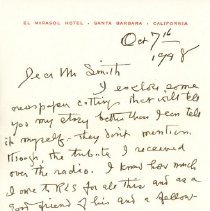 EL MIRASOL HOTEL · SANTA BARBARA · CALIFORNIA
Oct 7th
Dear Mr Smith
I enclose some
newspaper cutting that will tell
you my story better than I can tell
it myself. They don't mention
though, the tribute I received
over the radio. I know how much
I owe to RLS for all this and as a
good friend of his and a fellow